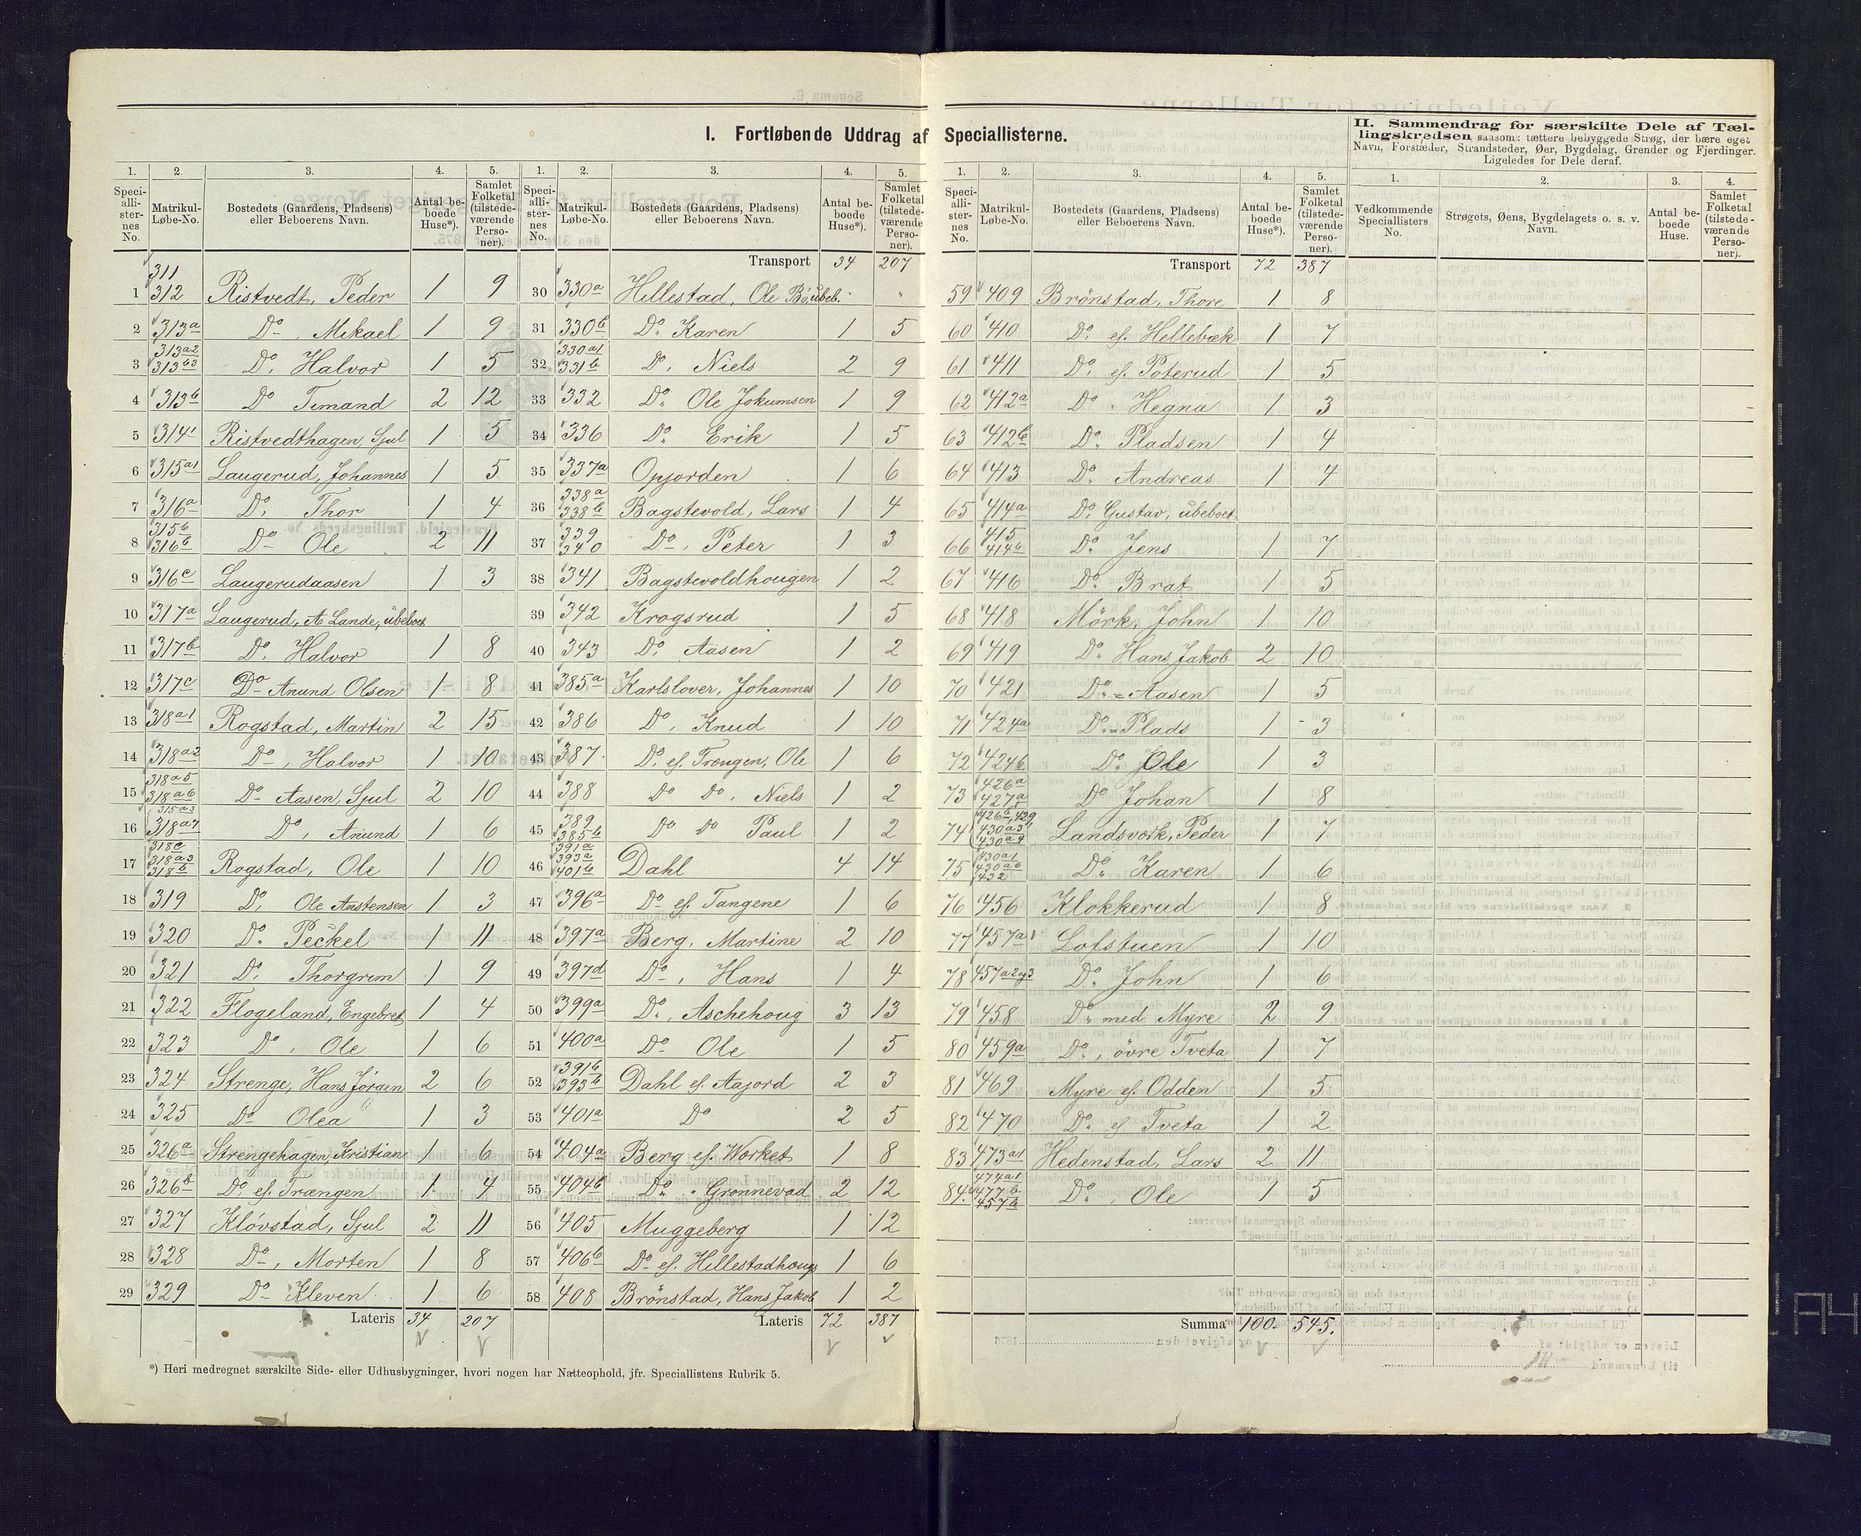 I. Fortløbende Uddrag af Speciallisterne.
II. Sammendrag for særskilte Dele af Tæl-
lingskredsen saasom: tættere bebyggede Strøg, der bære eget
Navn, Forstæder, Strandsteder, Øer, Bygdelag, Grender og Fjerdinger.
Ligeledes for Dele deraf.
1. 2. 3. 4. 5.
Speciallisternes No. Matrikul-Løbe-No. Bostedets (Gaardens, Pladsens) eller Beboerens Navn. Antal beboede Huse*). Samlet Folketal (tilstedeværende Personer).
311 312
1 Ristvedt, Peder 1 9
2 313a Do, Mikael 1 9
3 313a2 313b3 Do, Halvor 1 5
4 313b Do Temand 2 12
5 314 Ristvedthagen, Sjul 1 5
6 315a1 Laugerud, Johannes 1 5
7 316a Do, Thor 1 4
8 315b 316b Do Ole 2 11
9 316c Laugerudaasen 1 3
10 317a Laugerud, A Lande, ubeboet
11 317b Do, Halvor 1 8
12 317c Do Anund Olsen 1 8
13 318a1 Rogstad, Martin 2 15
14 318a2 Do, Halvor 1 10
15 318a5 318a6 Do Aasen, Sjul 2 10
16 315a3 318a7 Do, Anund 1 6
17 318c 318a3 318b Rogstad, Ole 1 10
18 319 Do, Ole Anstensen 1 3
19 320 Do Peckel 1 11
20 321 Do, Thorgrim 1 9
21 322 Flogeland, Engebret 1 4
22 323 Do, Ole 1 6
23 324 Strenge, Hans Jørgen 2 6
24 325 Do Olea 1 3
25 326a Strengehagen, Kristian 1 6
26 326b Do ef. Trængen 1 4
27 327 Kløvstad, Sjul 2 11
28 328 Do, Morten 1 8
29 329 Do Kleven 1 6
Lateris 34 207
1. 2. 3. 4. 5.
Speciallisternes No. Matrikul-Løbe-No. Bostedets (Gaardens, Pladsens) eller Beboerens Navn. Antal beboede Huse*). Samlet Folketal (tilstedeværende Personer).
Transport 34 207
30 330a Hillestad, Ole Bø, ubeb.
31 330b Do Karen 1 5
32 330a1 331b Do, Niels 2 9
33 332 Do Ole Jokumsen 1 9
34 336 Do Erik 1 5
35 337a Opjorden 1 6
36 338a 338b Bagstevold, Lars 1 4
37 339 340 Do, Peter 1 3
38 341 Bagstevoldhougen 1 2
39 342 Krogsrud 1 5
40 343 Do, Aasen 1 2
41 385a Karlslover, Johannes 1 10
42 386 Do, Knud 1 10
43 387 Do ef. Trængen, Ole 1 6
44 388 Do Do, Niels 1 2
45 389 385b Do Do Paul 1 2
46 391a 393a 401b Dahl 4 14
47 396a Do ef. Tangene 1 6
48 397a Berg, Martine 2 10
49 397d Do, Hans 1 4
50 399a Do, Aschehoug 3 13
51 400a Do Ole 1 5
52 391b 393b Dahl ef. Aajord 2 3
53 401a Do 2 5
54 404a Berg ef. Worket 1 8
55 404b Do " Grønnevad 2 12
56 405 Muggeberg 1 12
57 406b Do ef. Hillestadhoug 1 6
58 408 Brønstad, Hans Jakob 1 2
Lateris 72 387
1. 2. 3. 4. 5.
Speciallisternes No. Matrikul-Løbe-No. Bostedets (Gaardens, Pladsens) eller Beboerens Navn. Antal beboede Huse*). Samlet Folketal (tilstedeværende Personer).
Transport 72 387
59 409 Brønstad, Thore 1 8
60 410 Do ef. Hellebæk 1 7
61 411 Do, ef. Poterud 1 5
62 412a Do " Hegna 1 3
63 412b Do, Pladsen 1 4
64 413 Do, Andreas 1 4
65 414a Do Gustav, ubeboet
66 415 414b Do, Jens 1 7
67 416 Do Brat 1 5
68 418 Mörk, John 1 10
69 419 Do Hans Jakob 2 10
70 421 Do = Aasen 1 5
71 424a Do = Plads 1 3
72 424b Do Ole 1 3
73 426a 427a Do Johan 1 8
74 426b, 429, 430a3 430a9 Landsverk, Peder 1 7
75 430a1 430a6 432 Do Karen 1 6
76 456 Klokkerud 1 8
77 457a1 Lofstuen 1 10
78 457a2og3 Do John 1 6
79 458 Do med Myre 2 9
80 459a Do, övre Tveta 1 7
81 469 Myre ef. Odden 1 5
82 470 Do ef Tveta 1 2
83 473a1 Hedenstad, Lars 2 11
84. 474a1 477b 457b Do, Ole 1 5
Summa 100. 545.
1. 2. 3. 4.
Vedkommende Speciallisters No. Strøgets, Øens, Bygdelagets o. s. v. Navn. Antal beboede Huse. Samlet Folketal (tilstedeværende Personer).
*) Heri medregnet særskilte Side- eller Udhusbygninger, hvori nogen har Natteophold, jfr. Speciallistens Rubrik 5.